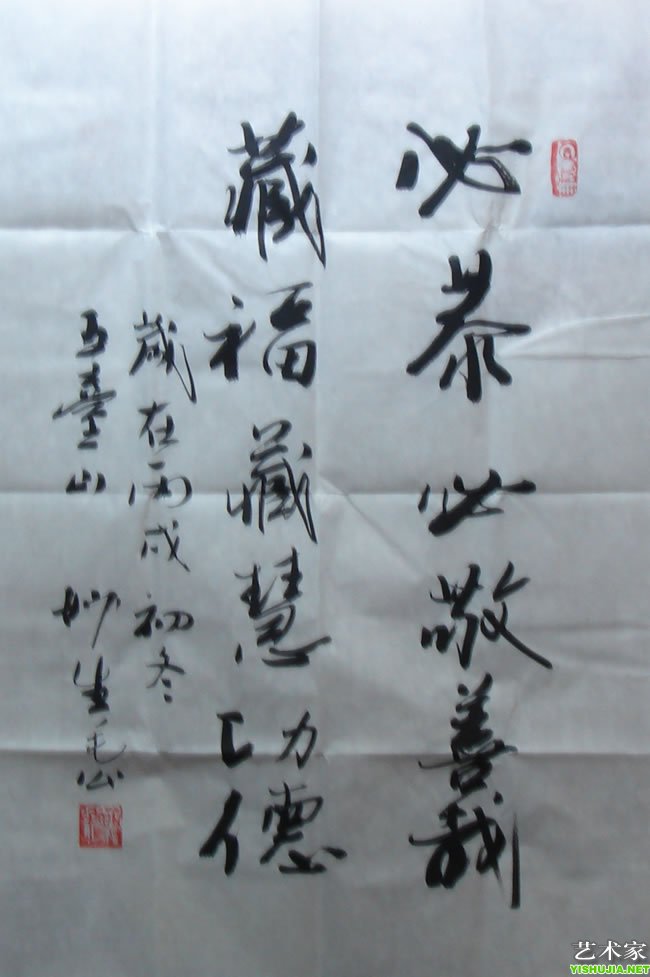 必恭必敬善哉
藏福藏慧功德
歲在丙戌初冬
五臺山 妙生
艺术家
YISHUJIA.NET